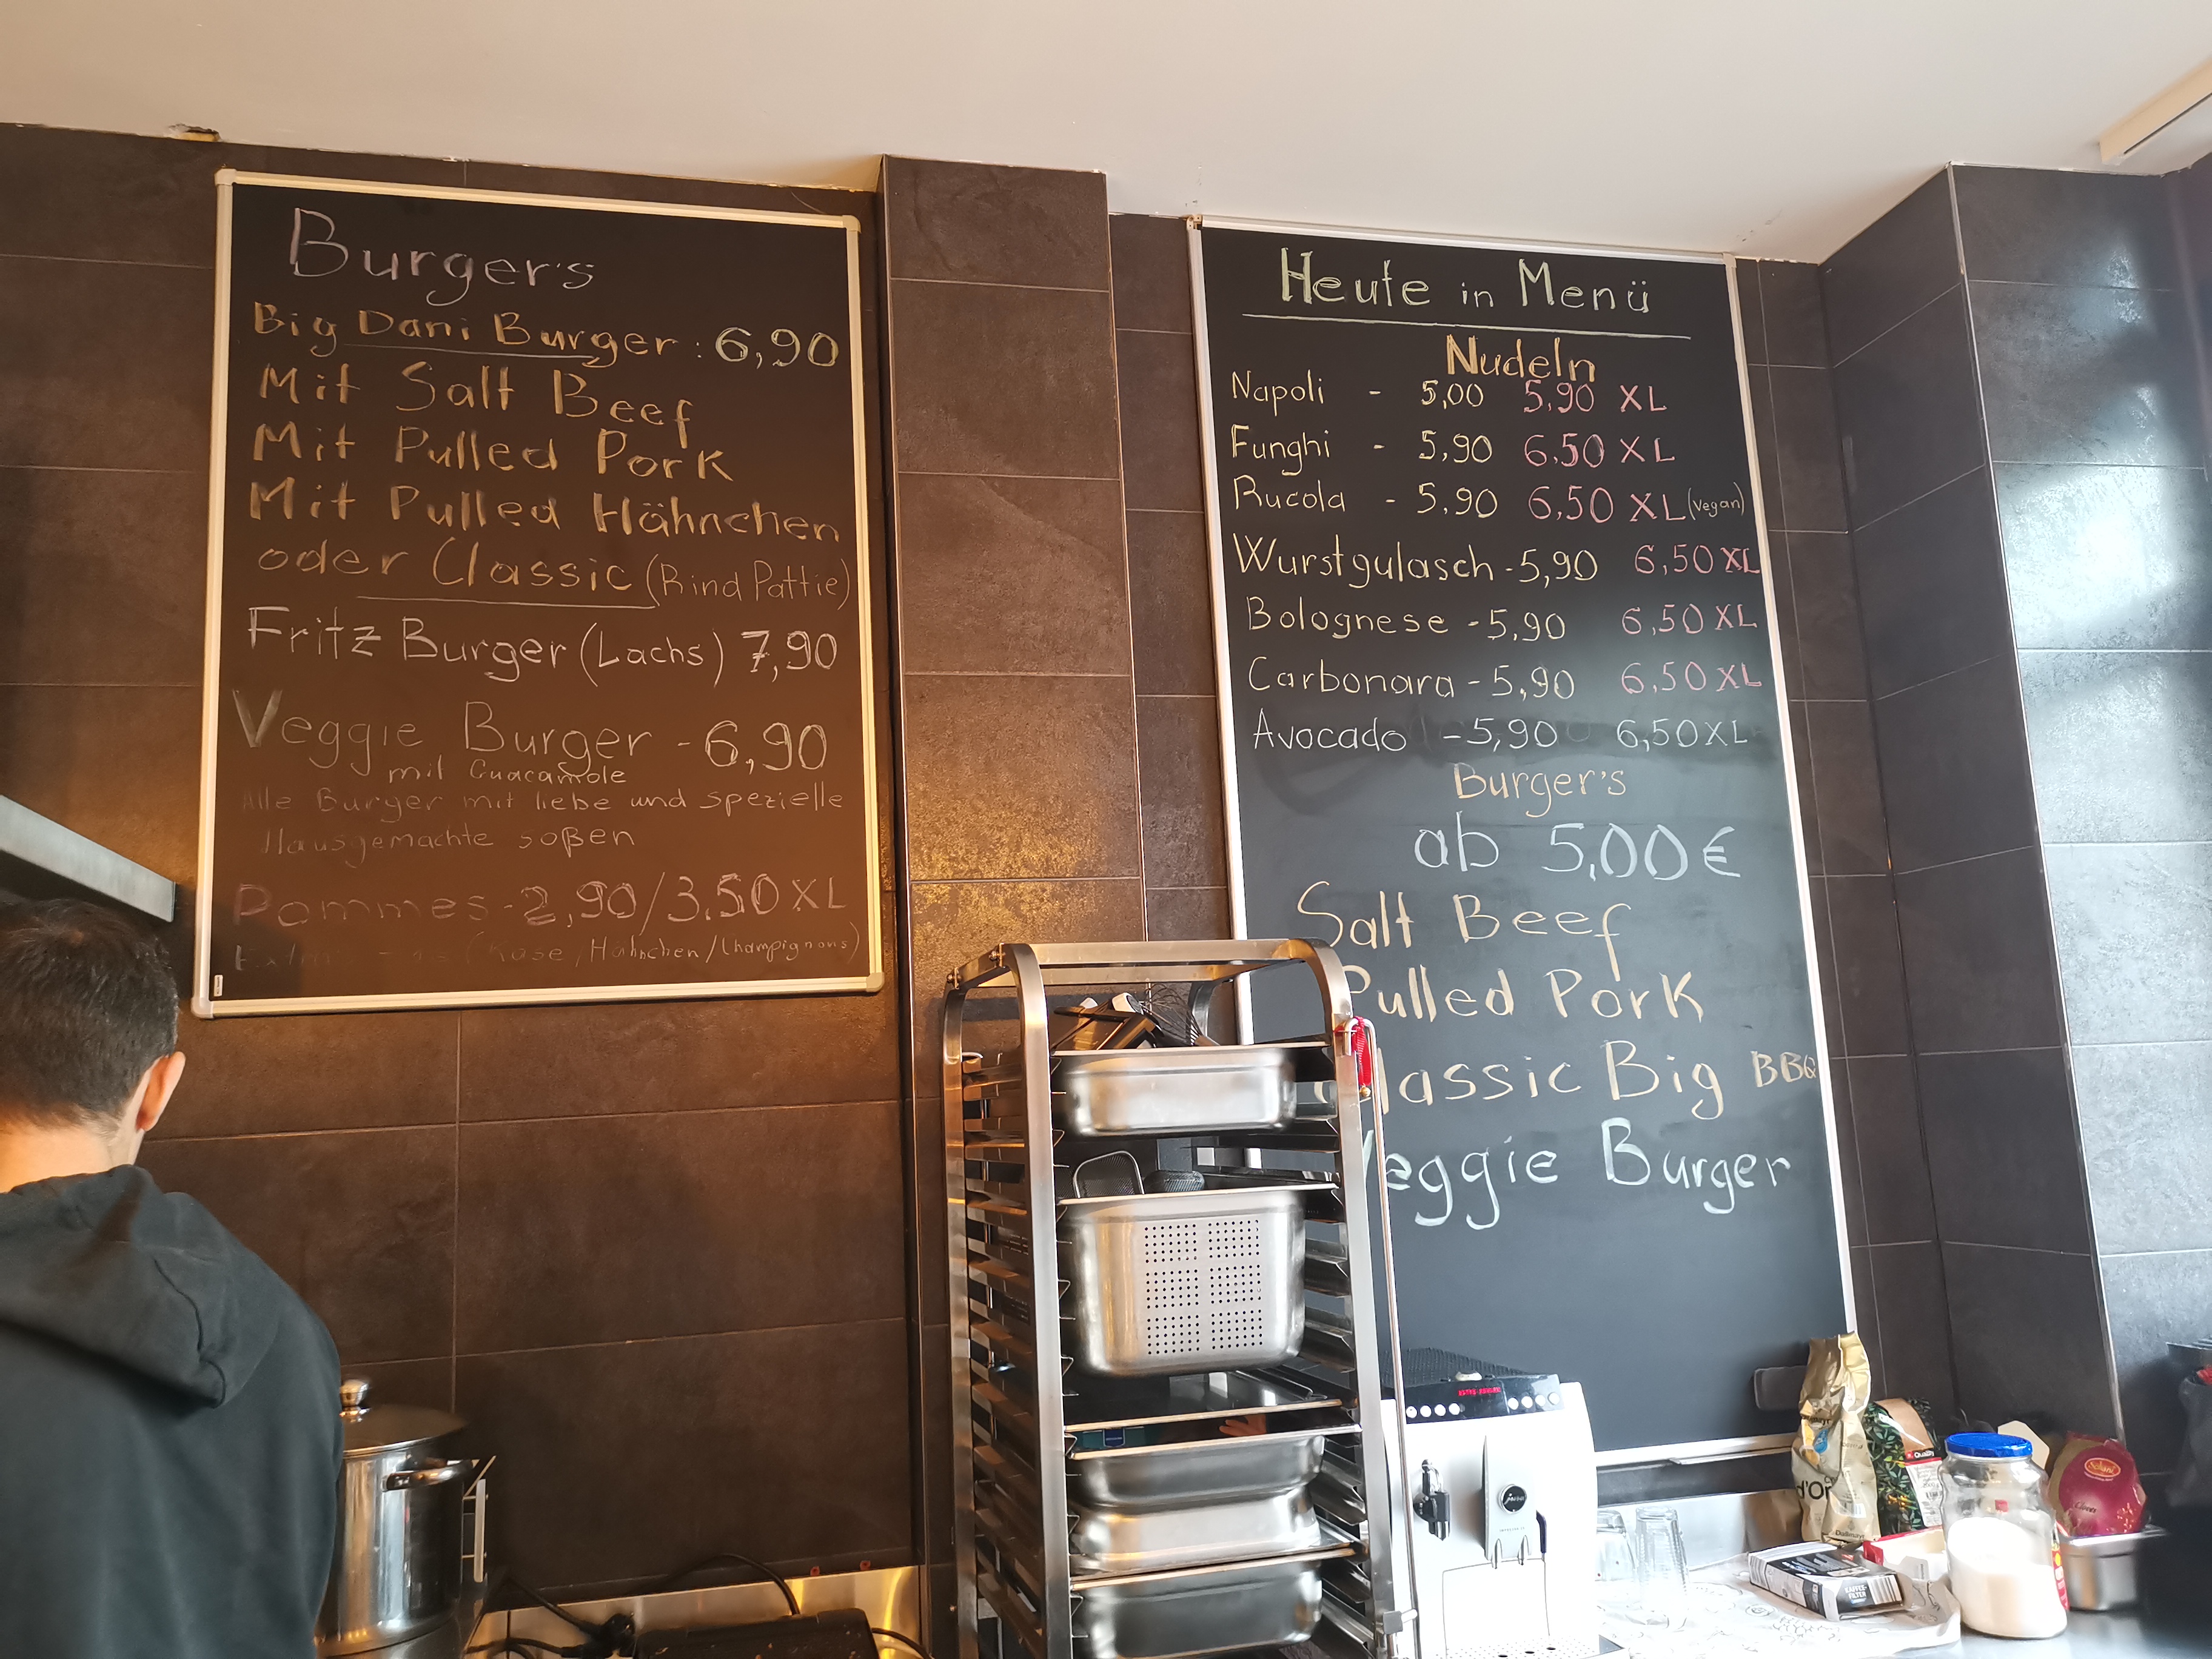 Burger's
Big Dani Burger : 6,90
Mit Salt Beef
Mit Pulled Pork
Mit Pulled Hähnchen
oder Classic (Rind Pattie)
Fritz Burger (Lachs) 7,90
Veggie Burger - 6,90
mit Guacamole
Alle Burger mit liebe und spezielle
Hausgemachte soßen
Pommes - 2,90/3.50 XL
(Käse, Hähnchen/Champignons)
Heute in Menü
Nudeln
Napoli - 5,00 5,90 XL
Funghi - 5,90 6,50 XL
Rucola - 5,90 6,50 XL (vegan)
Wurstgulasch - 5,90 6,50 XL
Bolognese - 5,90 6,50 XL
Carbonara - 5,90 6,50 XL
Avocado - 5,90 6,50 XL
Burger's
ab 5,00 €
Salt Beef
Pulled Pork
Classic Big BBQ
Veggie Burger
jura
d'Or
Dallmayr
Schani
KAFFEE-
FILTER